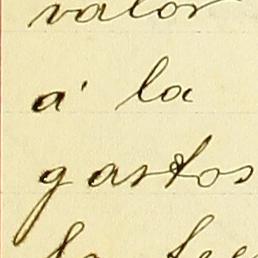 valor
á la
gastos